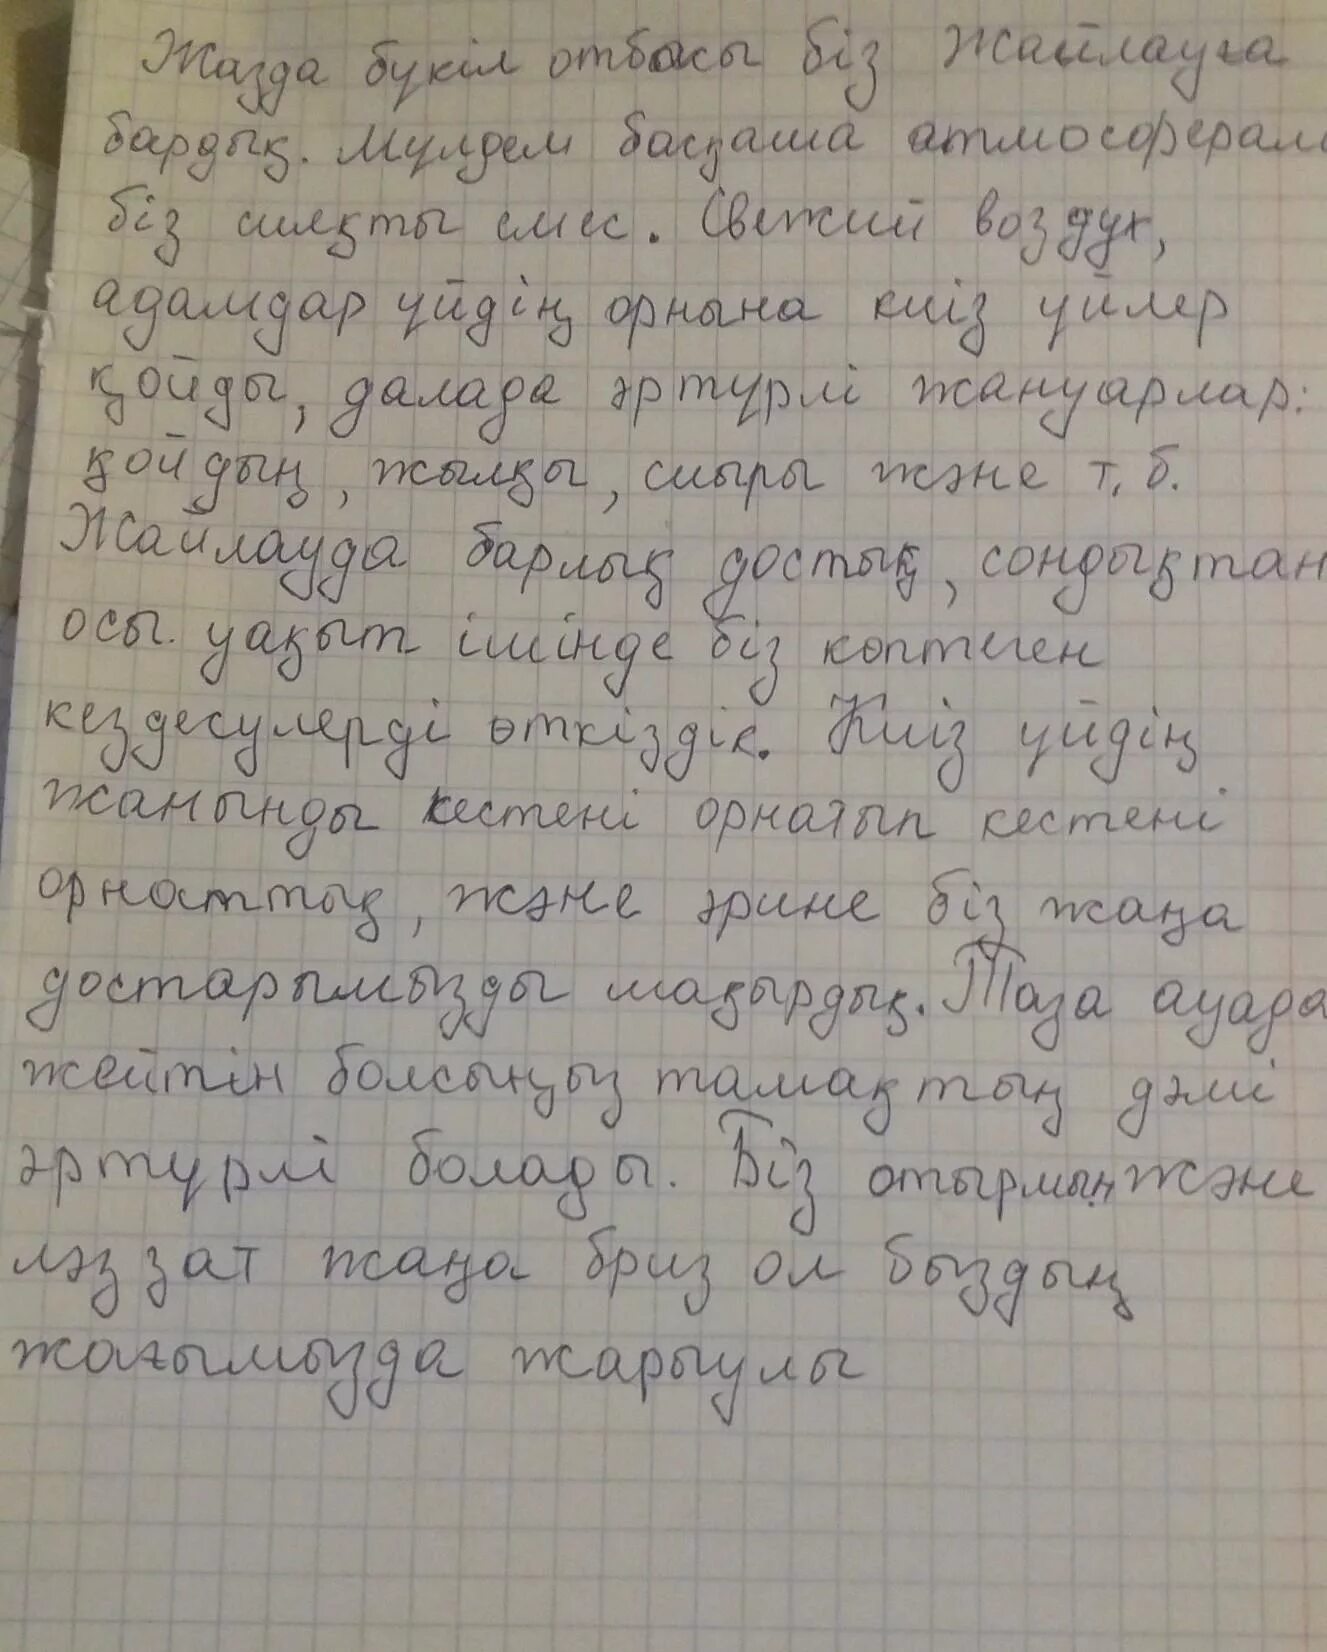 Жазда бүкіл отбасы біз Жайлауға
бардық. Мүлдем басқаша атмосферам
біз сияқты емес. Свежий воздух,
адамдар үйдің орнына киіз үйлер
қойды, далада әртүрлі жануарлар:
қойдың, жылқы, сиыры және т.б.
Жайлауда барлық достық, сондықтан
осы уақыт ішінде біз көптеген
кездесулерді өткіздік. Киіз үйдің
жанынды кестені орнатып кестені
орнаттық, және әрине біз жаңа
достарымызды шақырдық. Таза ауада
жейтін болсыңыз тамақтың дәмі
әртүрлі болады. Біз отырмын және
ләззат жаңа бриз ол быздың
жағымызда жарыулы